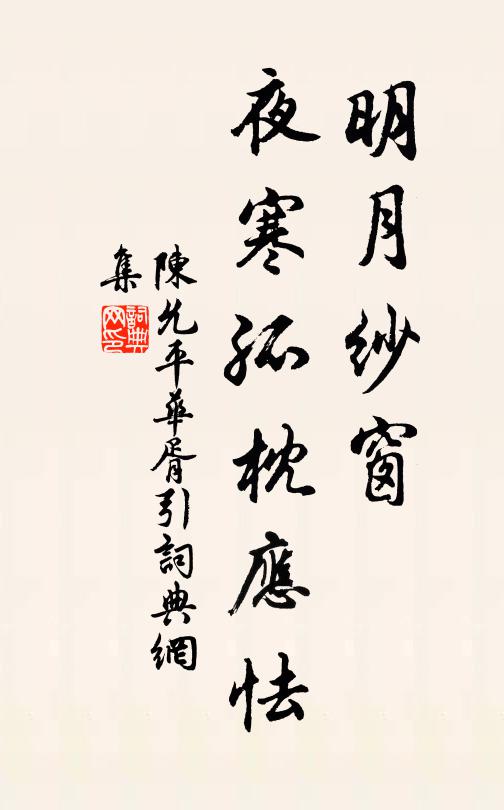 明月紗窗
夜寒孤枕應怯
陳允平華胥引詞典網
集
詞典網印